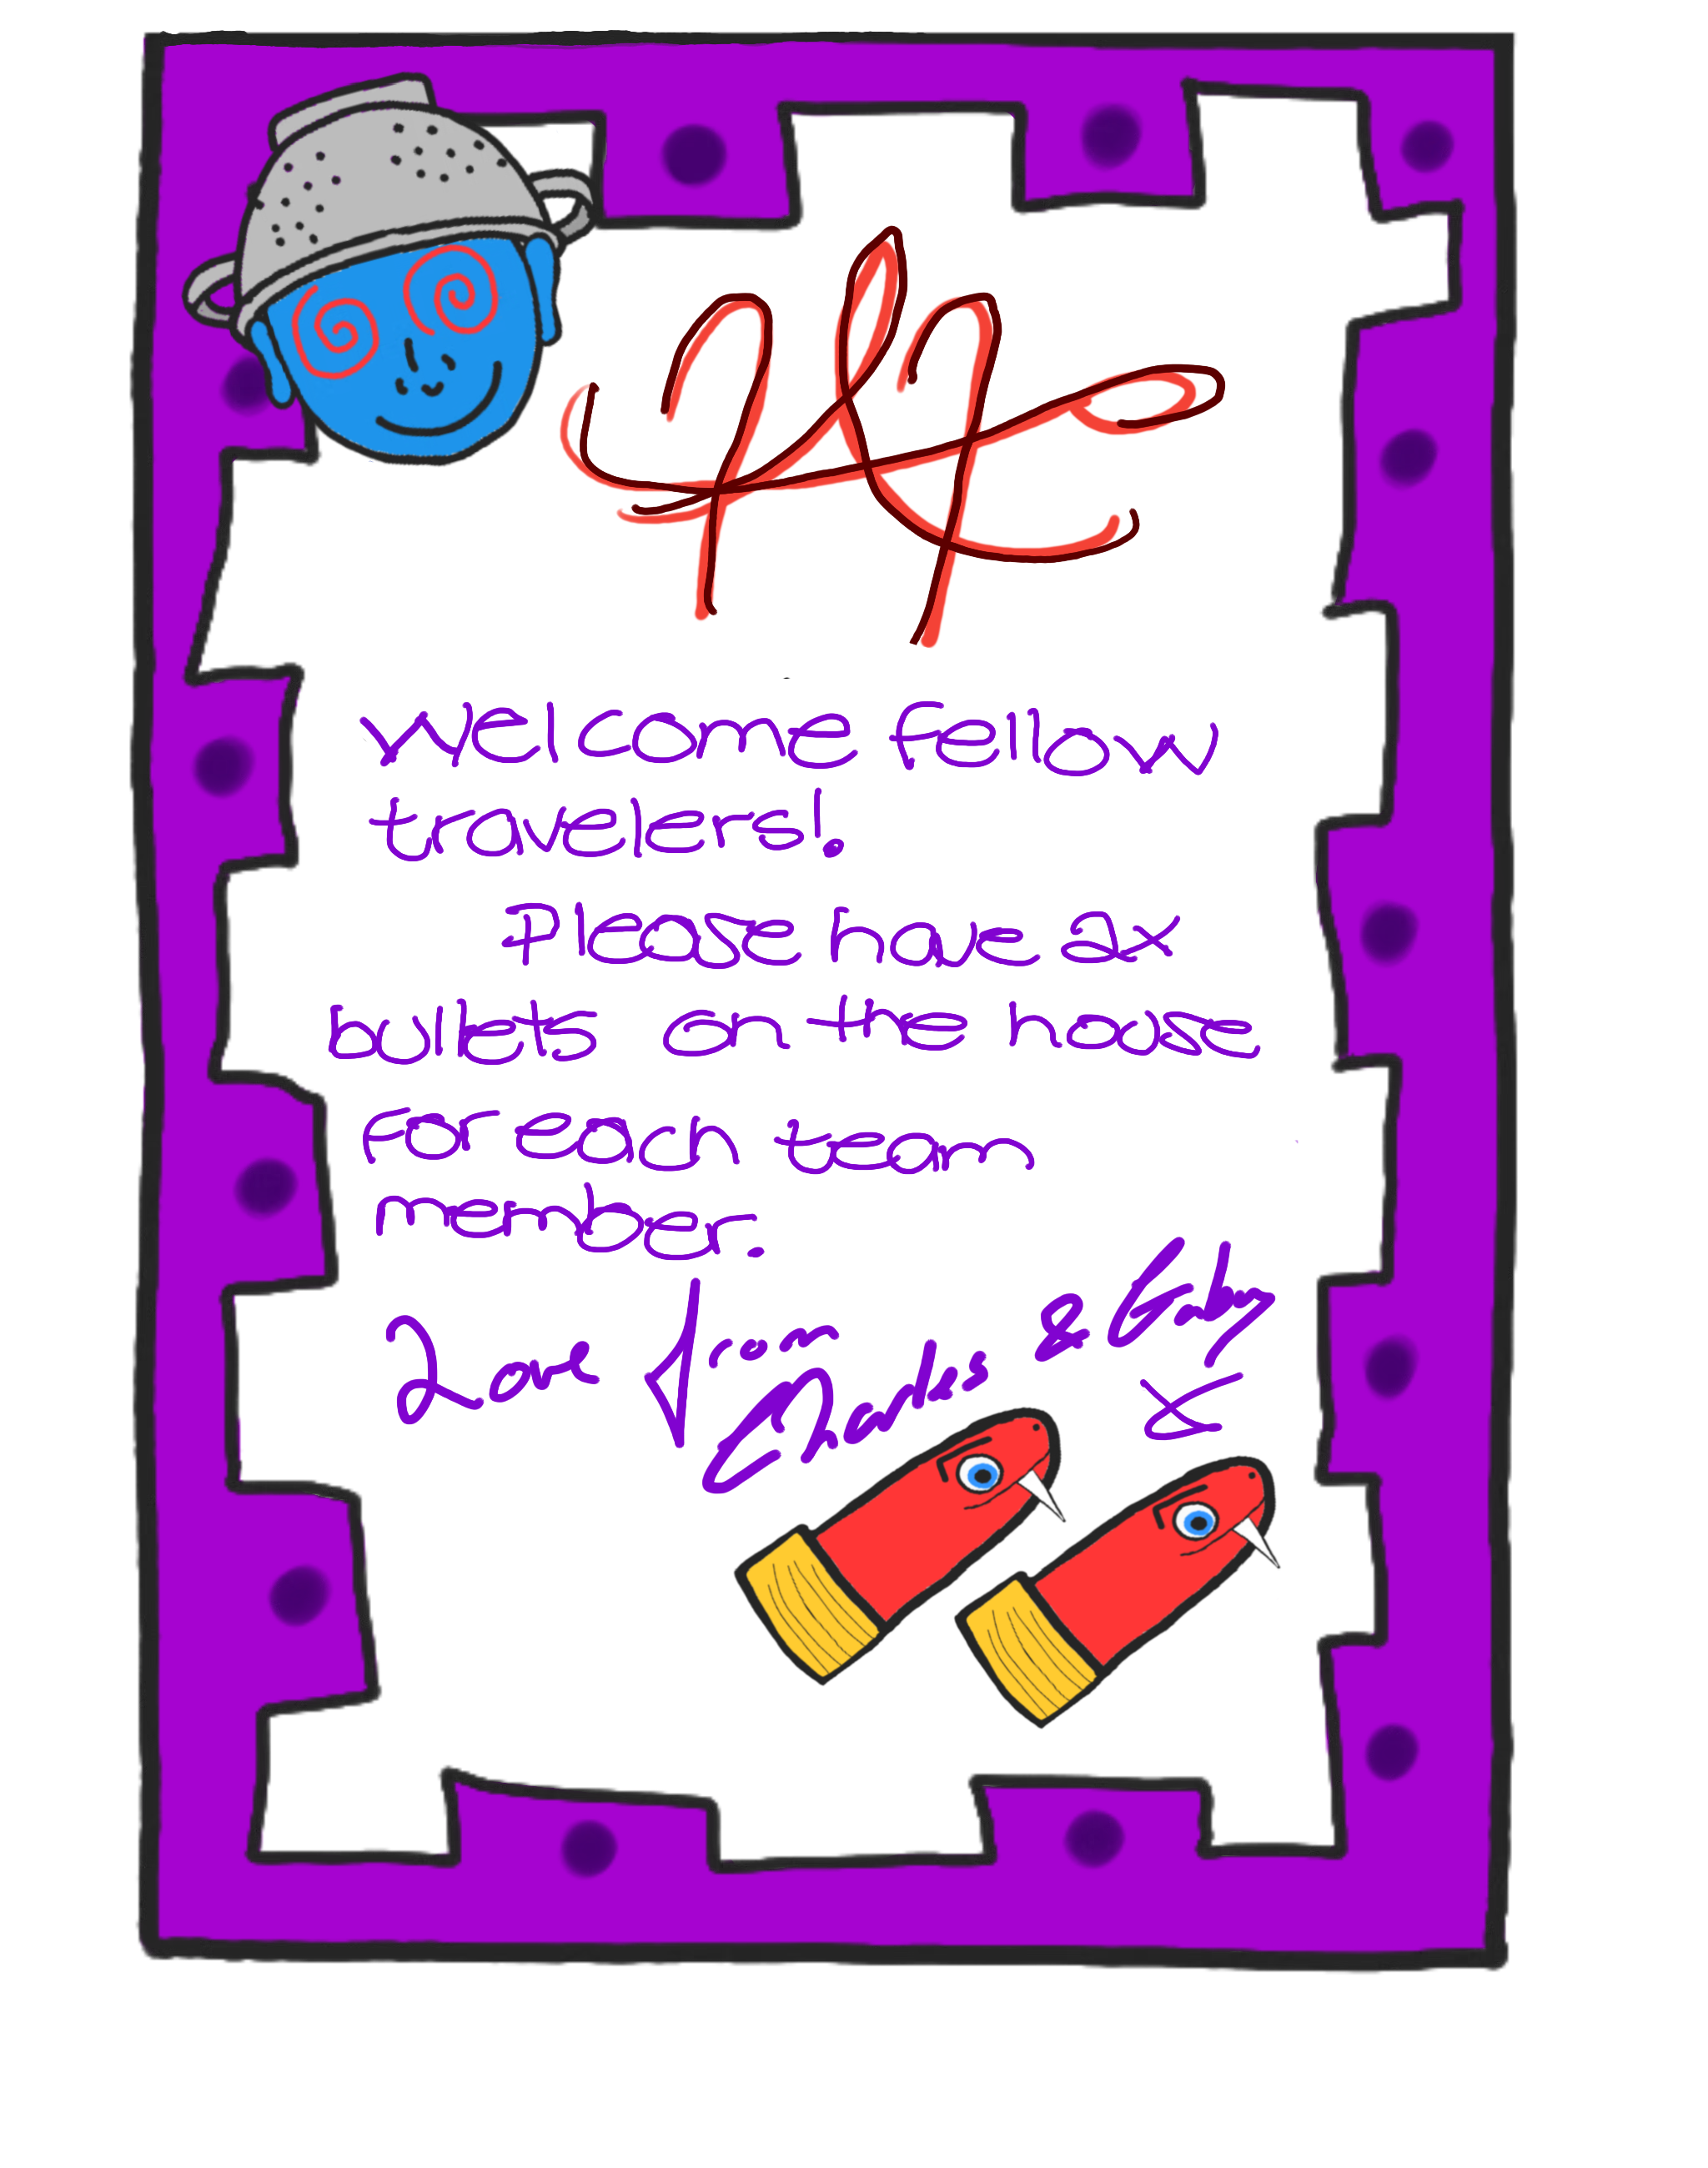 Welcome fellow
travelers!
Please have 2x
bullets on the house
for each team
member.
Love from
Charles & Gaby
x